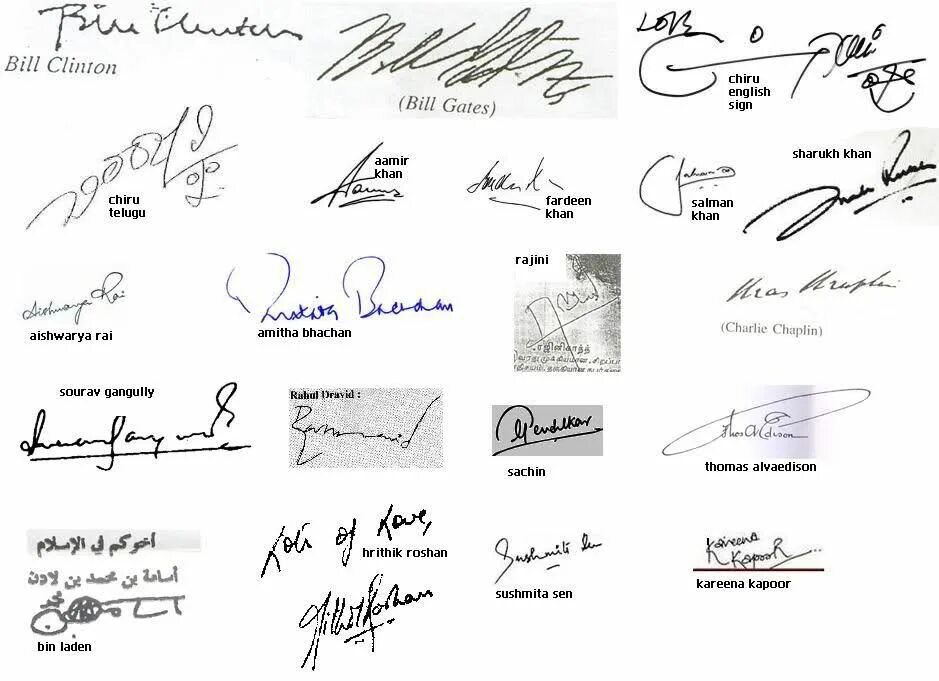 Bill Clinton
Bill Clinton
(Bill Gates)
LOVE
chiru
english
sign
chiru
telugu
aamir
khan
fardeen
khan
salman
khan
sharukh khan
Aishwarya Rai
aishwarya rai
Bachchan
amitha bhachan
rajini
ரஜினிகாந்த்
(Charlie Chaplin)
sourav gangully
Rahul Dravid :
Tendulkar
sachin
Thos A Edison
thomas alvaedison
أخوكم في الإسلام
أسامة بن محمد بن لادن
bin laden
of Love,
hrithik roshan
Hrithik Roshan
Sushmita Sen
sushmita sen
Kareena
Kapoor
kareena kapoor